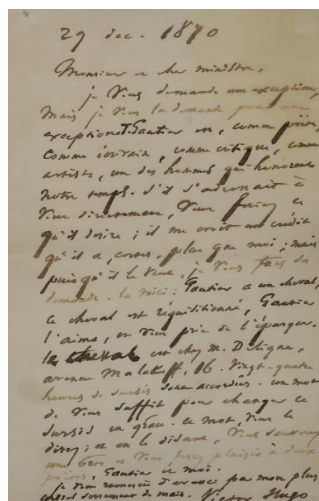 29 dec. 1870
Monsieur et cher ministre,
je vous demande une exception,
mais je vous la demande pour une
exception. Gautier est, comme poëte,
comme écrivain, comme critique, comme
artiste, un des hommes qui honorent
notre temps. S'il s'adressait à
vous directement, vous feriez ce
qu'il désire ; il me croit un crédit
qu'il a, certes, plus que moi ; mais
puisqu'il le veut, je vous fais sa
demande. la voici : Gautier a un cheval,
ce cheval est réquisitionné, Gautier
l'aime, et vous prie de l'épargner.
le cheval est chez m. Deligne,
avenue Malakoff, 16. Vingt-quatre
heures de sursis sont accordées. un mot
de vous suffit pour changer ce
sursis en grâce. ce mot, vous le
direz ; et en le disant, vous sauverez
une bête et vous ferez plaisir à deux
poëtes, Gautier et moi.
je vous remercie d'avance par mon plus
cordial serrement de main. Victor Hugo